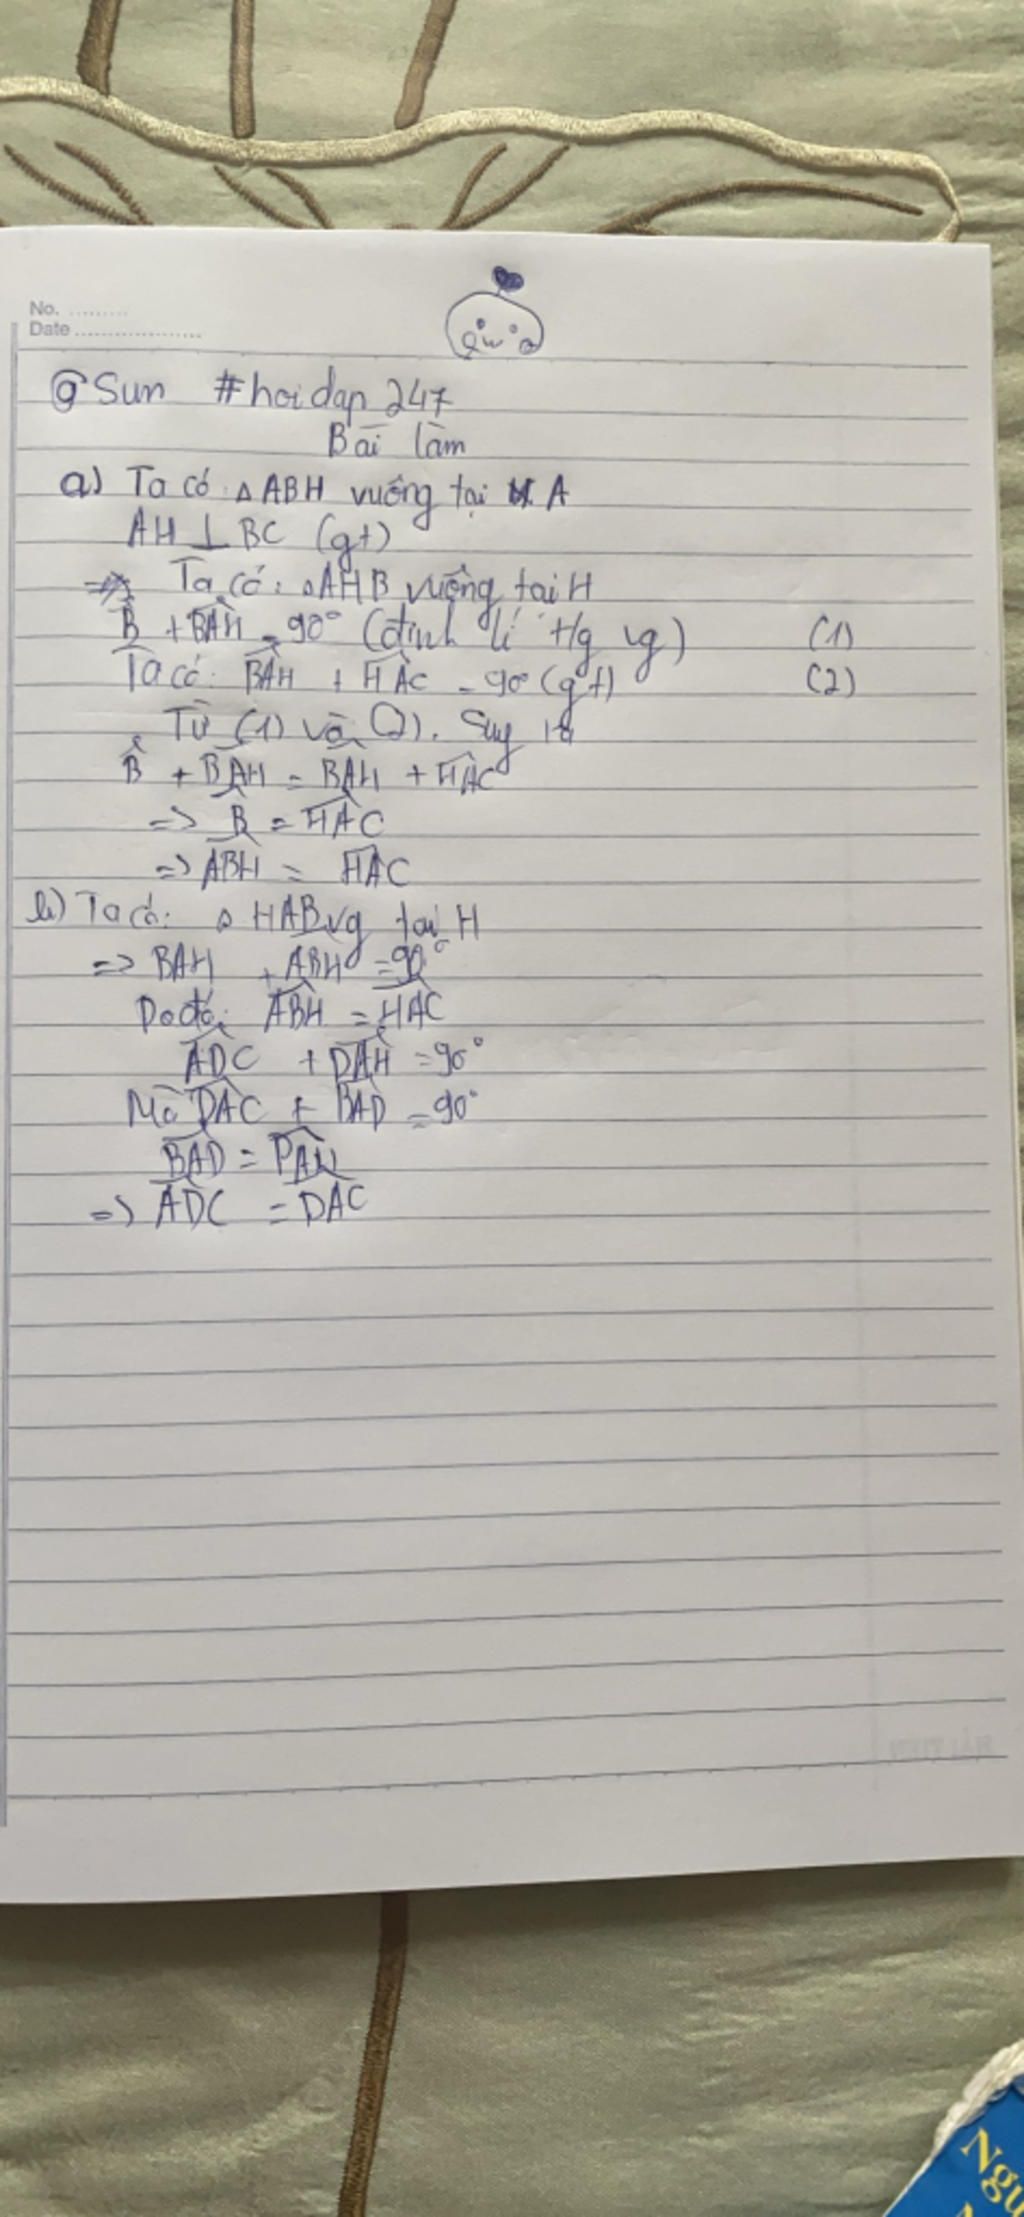 No. .........
Date ....................
@Sun #hoidap 247
Bài làm
a) Ta có △ABH vuông tại A
AH ⊥ BC (gt)
Ta có: △AHB vuông tại H
B̂ + BAH = 90° (định lí t/g vg) (1)
Ta có: BAH + HAC = 90° (gt) (2)
Từ (1) và (2). Suy ra
B̂ + BAH = BAH + HAC
=> B = HAC
=> ABH = HAC
b) Ta có: △ HAB vg tại H
=> BAH + ABH = 90°
Do đó: ABH = HAC
ADC + DAH = 90°
Mà DAC + BAD = 90°
BAD = DAH
=> ADC = DAC
HẢI TIẾN
Ngu